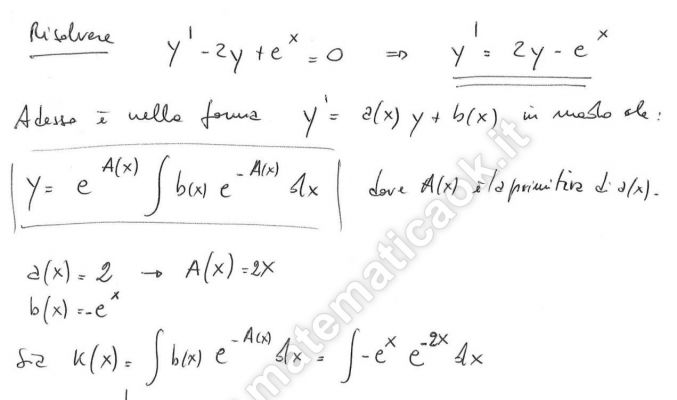 Risolvere y' - 2y + e^x = 0 ⇒ y' = 2y - e^x
Adesso è nella forma y' = a(x) y + b(x) in modo che:
y = e^A(x) ∫ b(x) e^-A(x) dx dove A(x) è la primitiva di a(x).
a(x) = 2 → A(x) = 2x
b(x) = -e^x
Sia K(x) = ∫ b(x) e^-A(x) dx = ∫ -e^x e^-2x dx
matematicaok.it